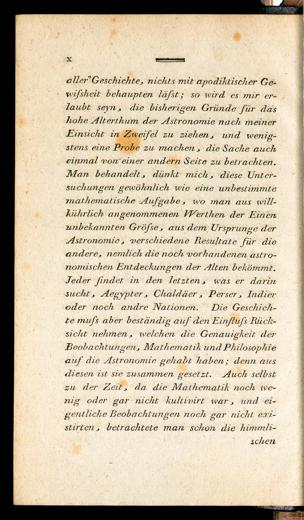 x
aller Geschichte, nichts mit apodiktischer Ge-
wiſsheit behaupten läſst; so wird es mir er-
laubt seyn, die bisherigen Gründe für das
hohe Alterthum der Astronomie nach meiner
Einsicht in Zweifel zu ziehen, und wenig-
stens eine Probe zu machen, die Sache auch
einmal von einer andern Seite zu betrachten.
Man behandelt, dünkt mich, diese Unter-
suchungen gewöhnlich wie eine unbestimmte
mathematische Aufgabe, wo man aus will-
kührlich angenommenen Werthen der Einen
unbekannten Gröſse, aus dem Ursprunge der
Astronomie, verschiedene Resultate für die
andere, nemlich die noch vorhandenen astro-
nomischen Entdeckungen der Alten bekömmt.
Jeder findet in den letzten, was er darin
sucht, Aegypter, Chaldäer, Perser, Indier
oder noch andre Nationen. Die Geschich-
te muſs aber beständig auf den Einfluſs Rück-
sicht nehmen, welchen die Genauigkeit der
Beobachtungen, Mathematik und Philosophie
auf die Astronomie gehabt haben; denn aus
diesen ist sie zusammen gesetzt. Auch selbst
zu der Zeit, da die Mathematik noch we-
nig oder gar nicht kultivirt war, und ei-
gentliche Beobachtungen noch gar nicht exi-
stirten, betrachtete man schon die himmli-
schen